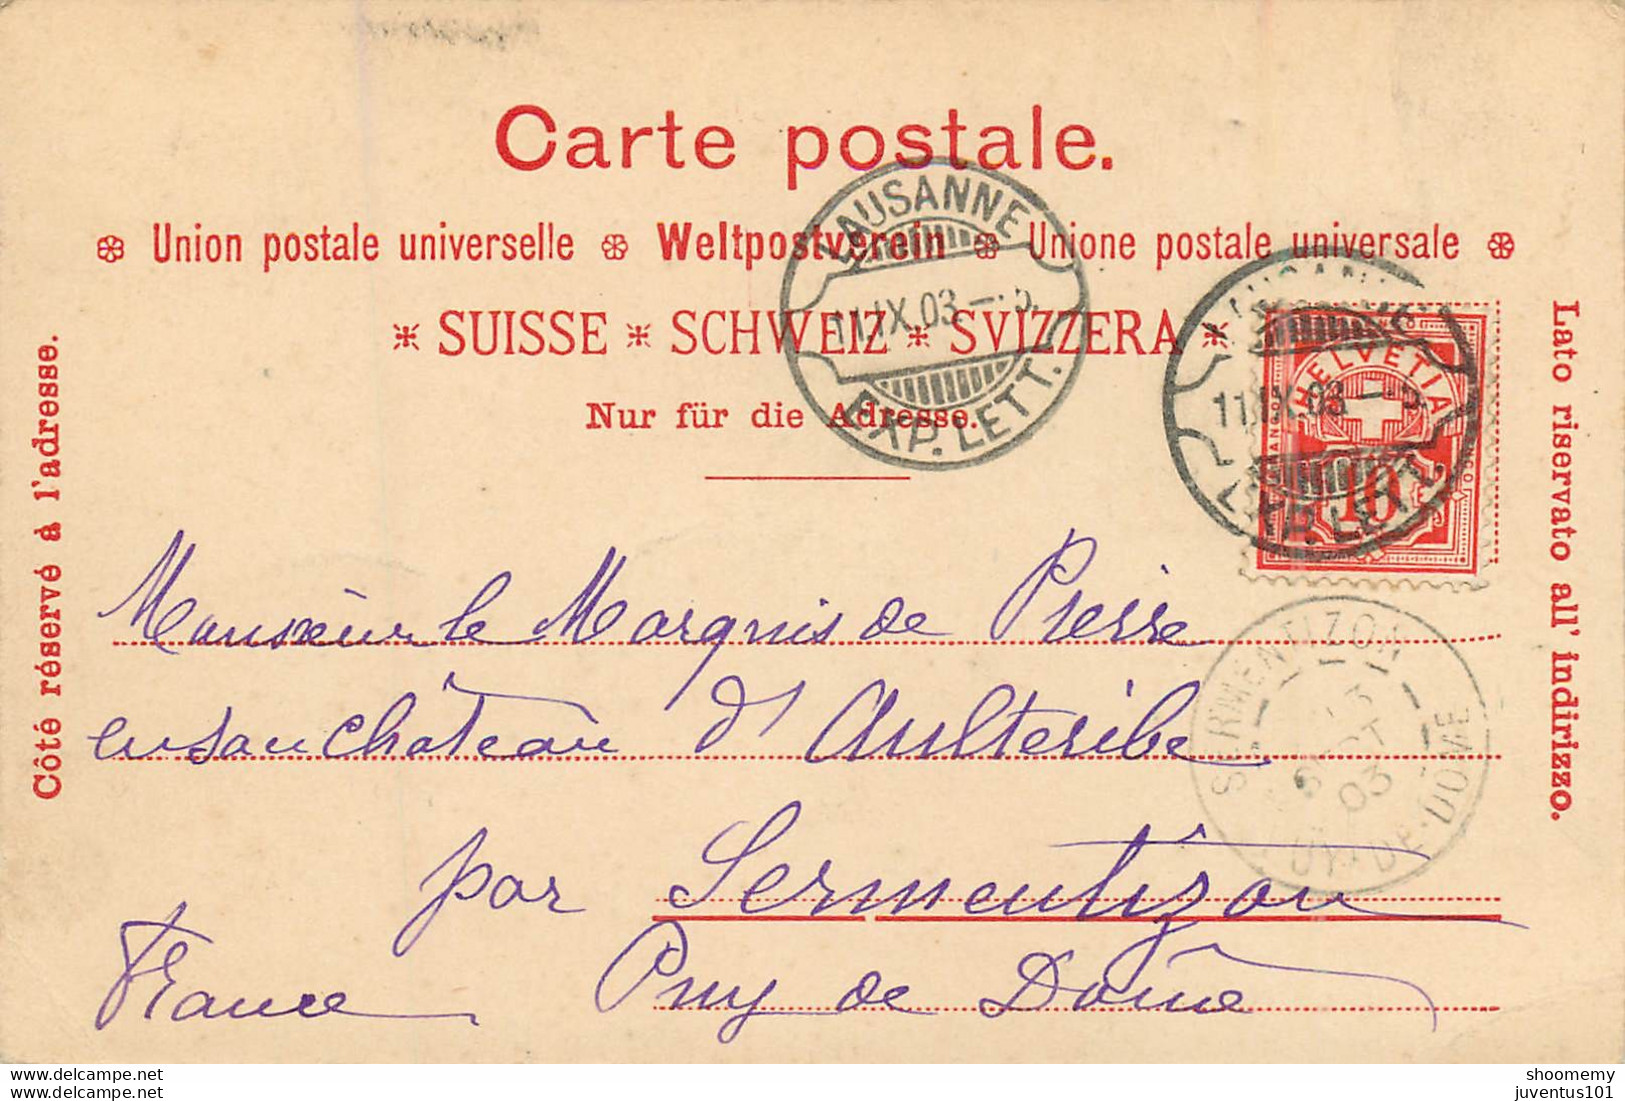 Carte postale.
Union postale universelle Weltpostverein Unione postale universale
SUISSE SCHWEIZ SVIZZERA
Nur für die Adresse.
Côté réservé à l'adresse.
Lato riservato all' indirizzo.
LAUSANNE
11.IX.03.
EXP. LETT.
11.IX.03
EXP. LETT.
HELVETIA
10
SERMENTIZON
SEPT
03
PUY-DE-DOME
Monsieur le Marquis de Pierre
en son château d'Aulteribe
par Sermentizon
France Puy de Dôme
delcampe.net
shoomemy
juventus101